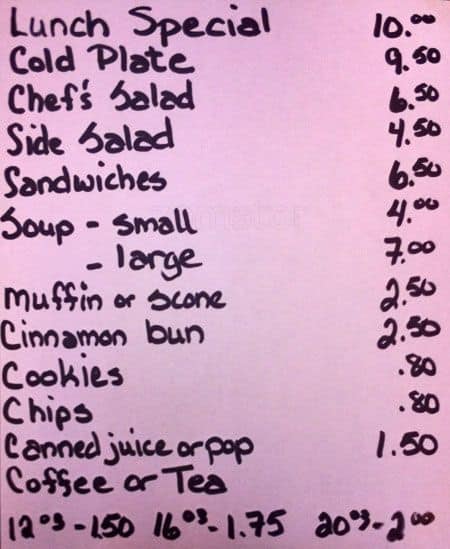 Lunch Special 10.00
Cold Plate 9.50
Chef's Salad 6.50
Side Salad 4.50
Sandwiches 6.50
Soup - small 4.00
- large 7.00
muffin or scone 2.50
Cinnamon bun 2.50
Cookies .80
Chips .80
Canned juice or pop 1.50
Coffee or Tea
12oz - 1.50 16oz - 1.75 20oz - 2.00